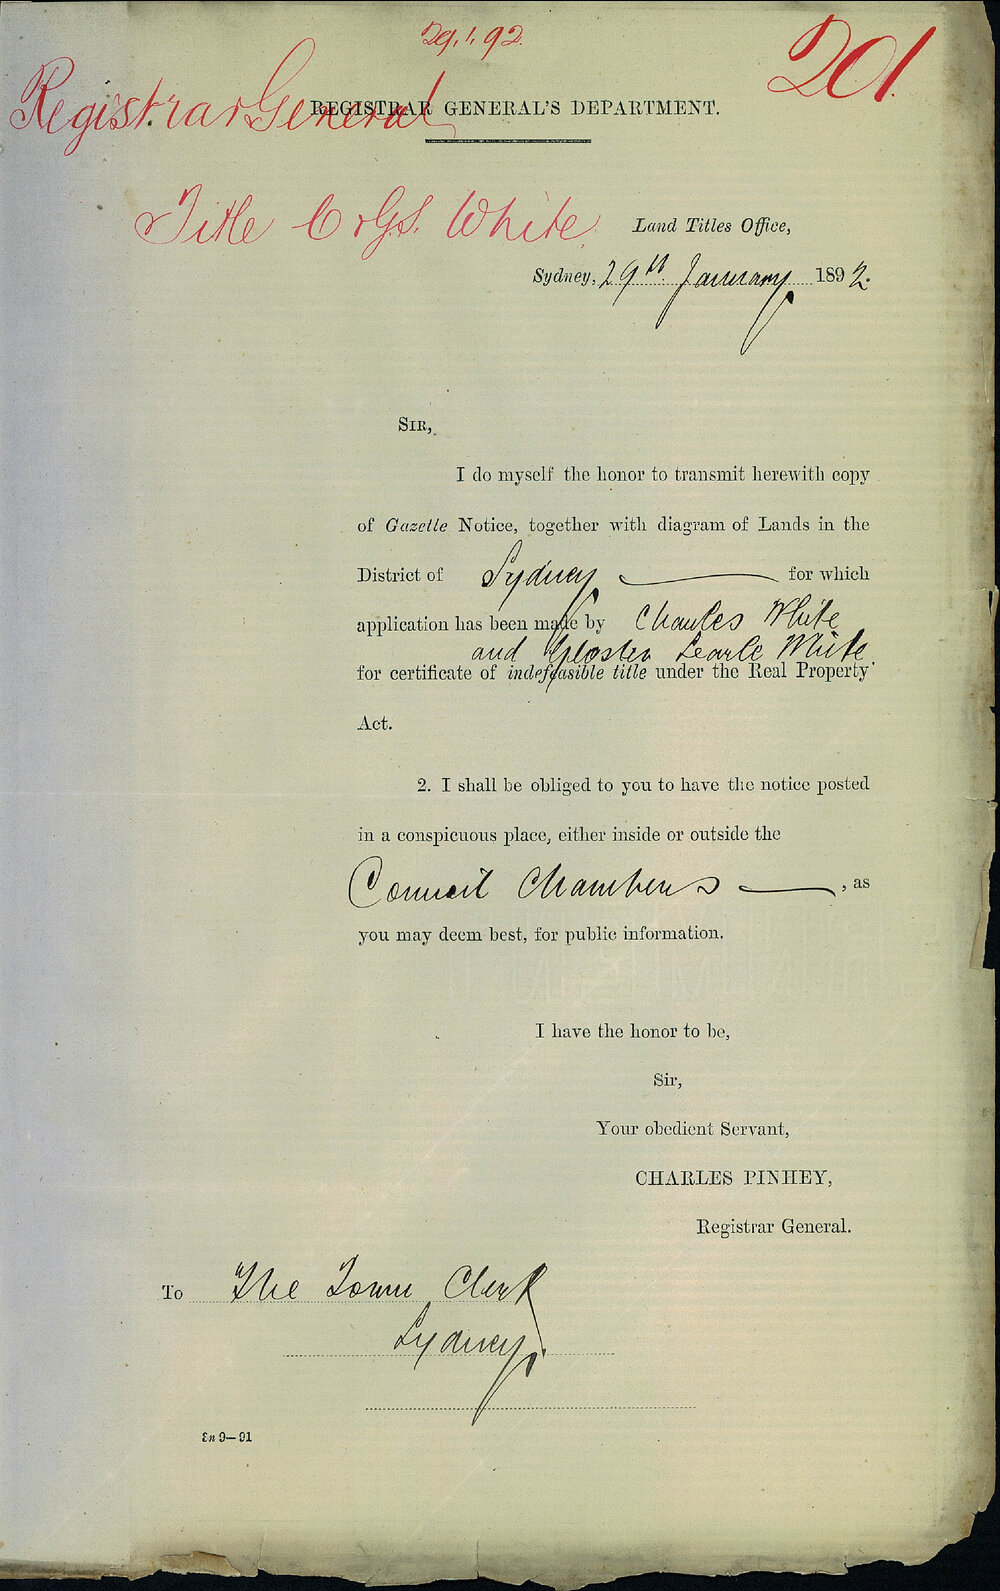 29.1.92.
201.
Registrar General
REGISTRAR GENERAL'S DEPARTMENT.
Title C & G.S. White.
Land Titles Office,
Sydney, 29th January 1892.
SIR,
I do myself the honor to transmit herewith copy
of Gazette Notice, together with diagram of Lands in the
District of Sydney for which
application has been made by Charles White
and Gloster Searle White
for certificate of indefeasible title under the Real Property
Act.
2. I shall be obliged to you to have the notice posted
in a conspicuous place, either inside or outside the
Council Chambers, as
you may deem best, for public information.
I have the honor to be,
Sir,
Your obedient Servant,
CHARLES PINHEY,
Registrar General.
To The Town Clerk
Sydney.
9—91